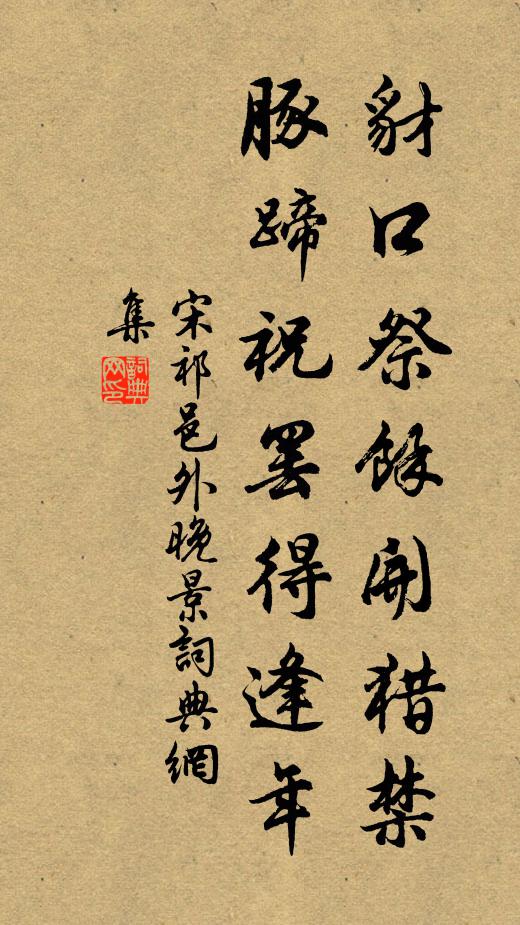 豺口祭餘開猎禁
豚蹄祝罷得逢年
宋祁邑外晚景詞典網
集
詞典网印